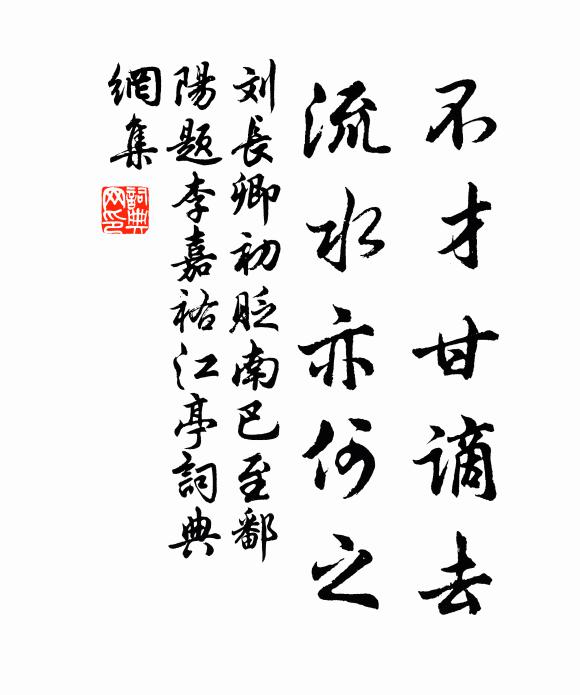 不才甘謫去
流水亦何之
刘長卿初贬南巴至鄱
陽題李嘉祐江亭詞典
網集
詞典
网印